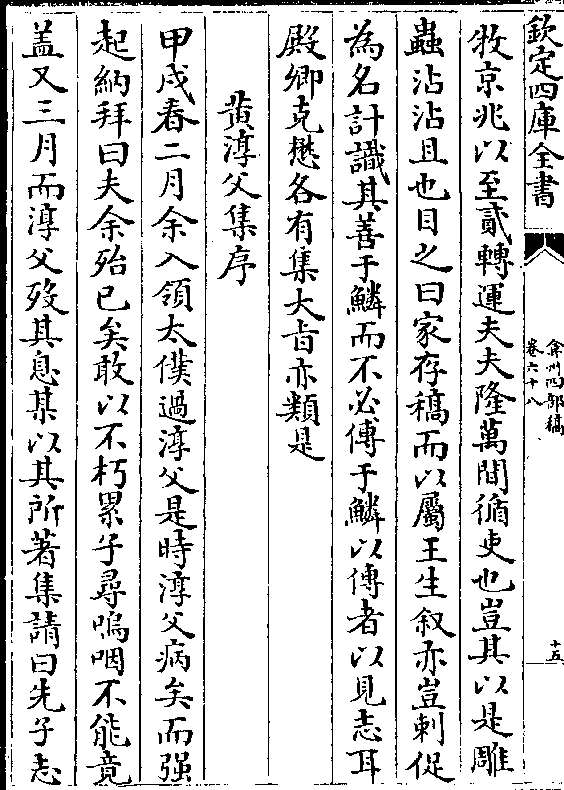 欽定四庫全書
弇州四部稿
卷六十八
十五
牧京兆以至貳轉運夫夫隆萬間循吏也豈其以是雕
蟲沾沾且也目之曰家存稿而以屬王生叙亦豈刺促
為名計識其善于鱗而不必傳于鱗以傳者以見志耳
殿卿克懋各有集大㫖亦類是
黄淳父集序
甲戌春二月余入領太僕過淳父是時淳父病矣而强
起納拜曰夫余殆已矣敢以不朽累子尋嗚咽不能竟
盖又三月而淳父歿其息某以其所著集請曰先子志